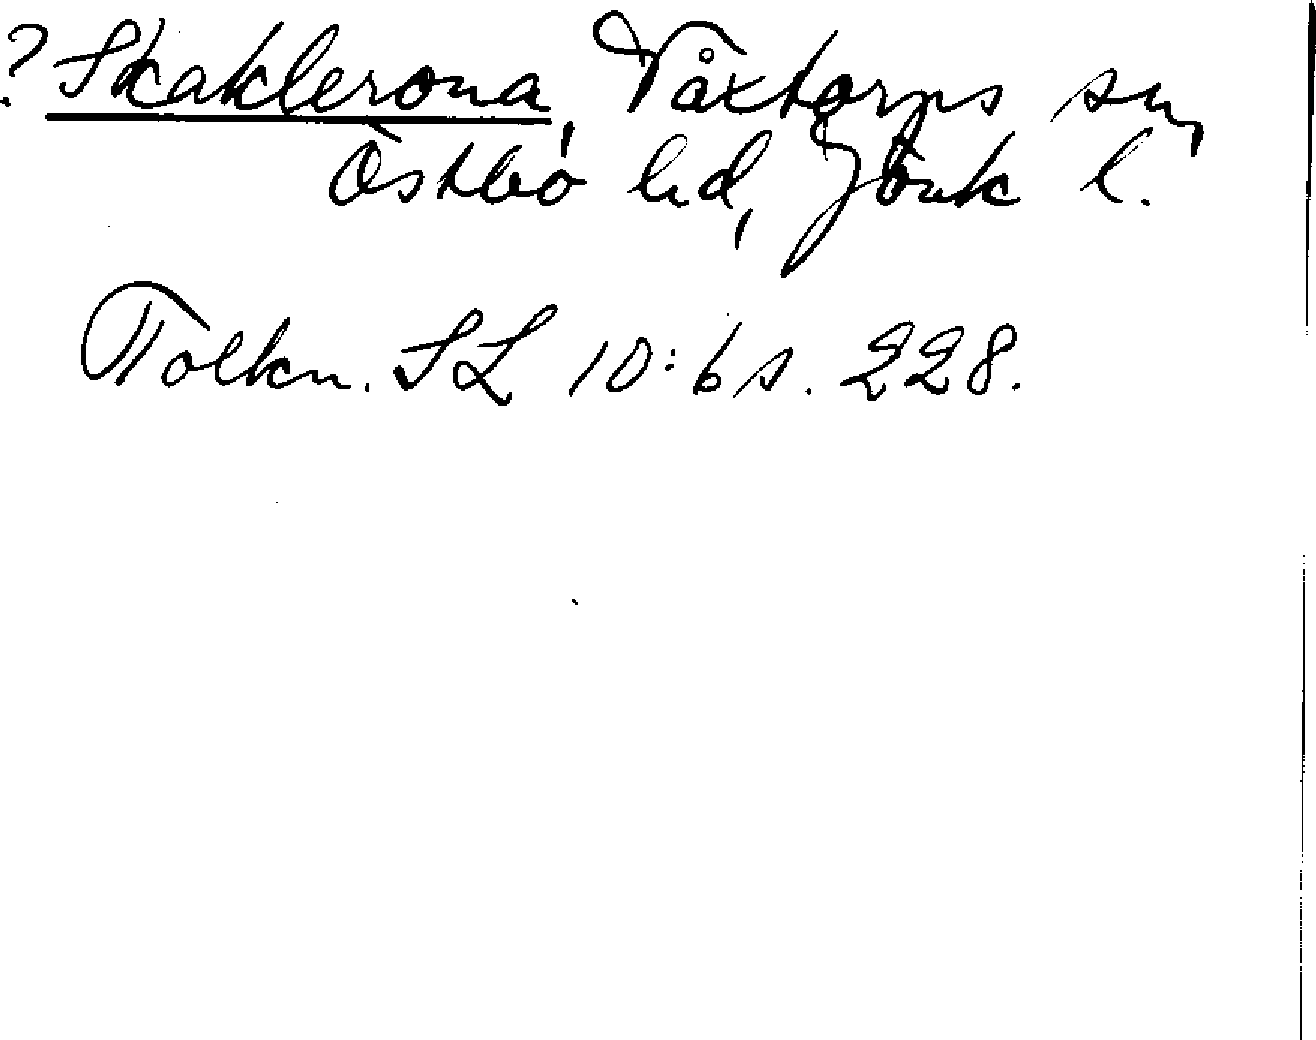 ? Skaklerona, Våxtorps sn,
Östbo hd, Jönk l.
Tolkn. SL 10:6 s. 228.